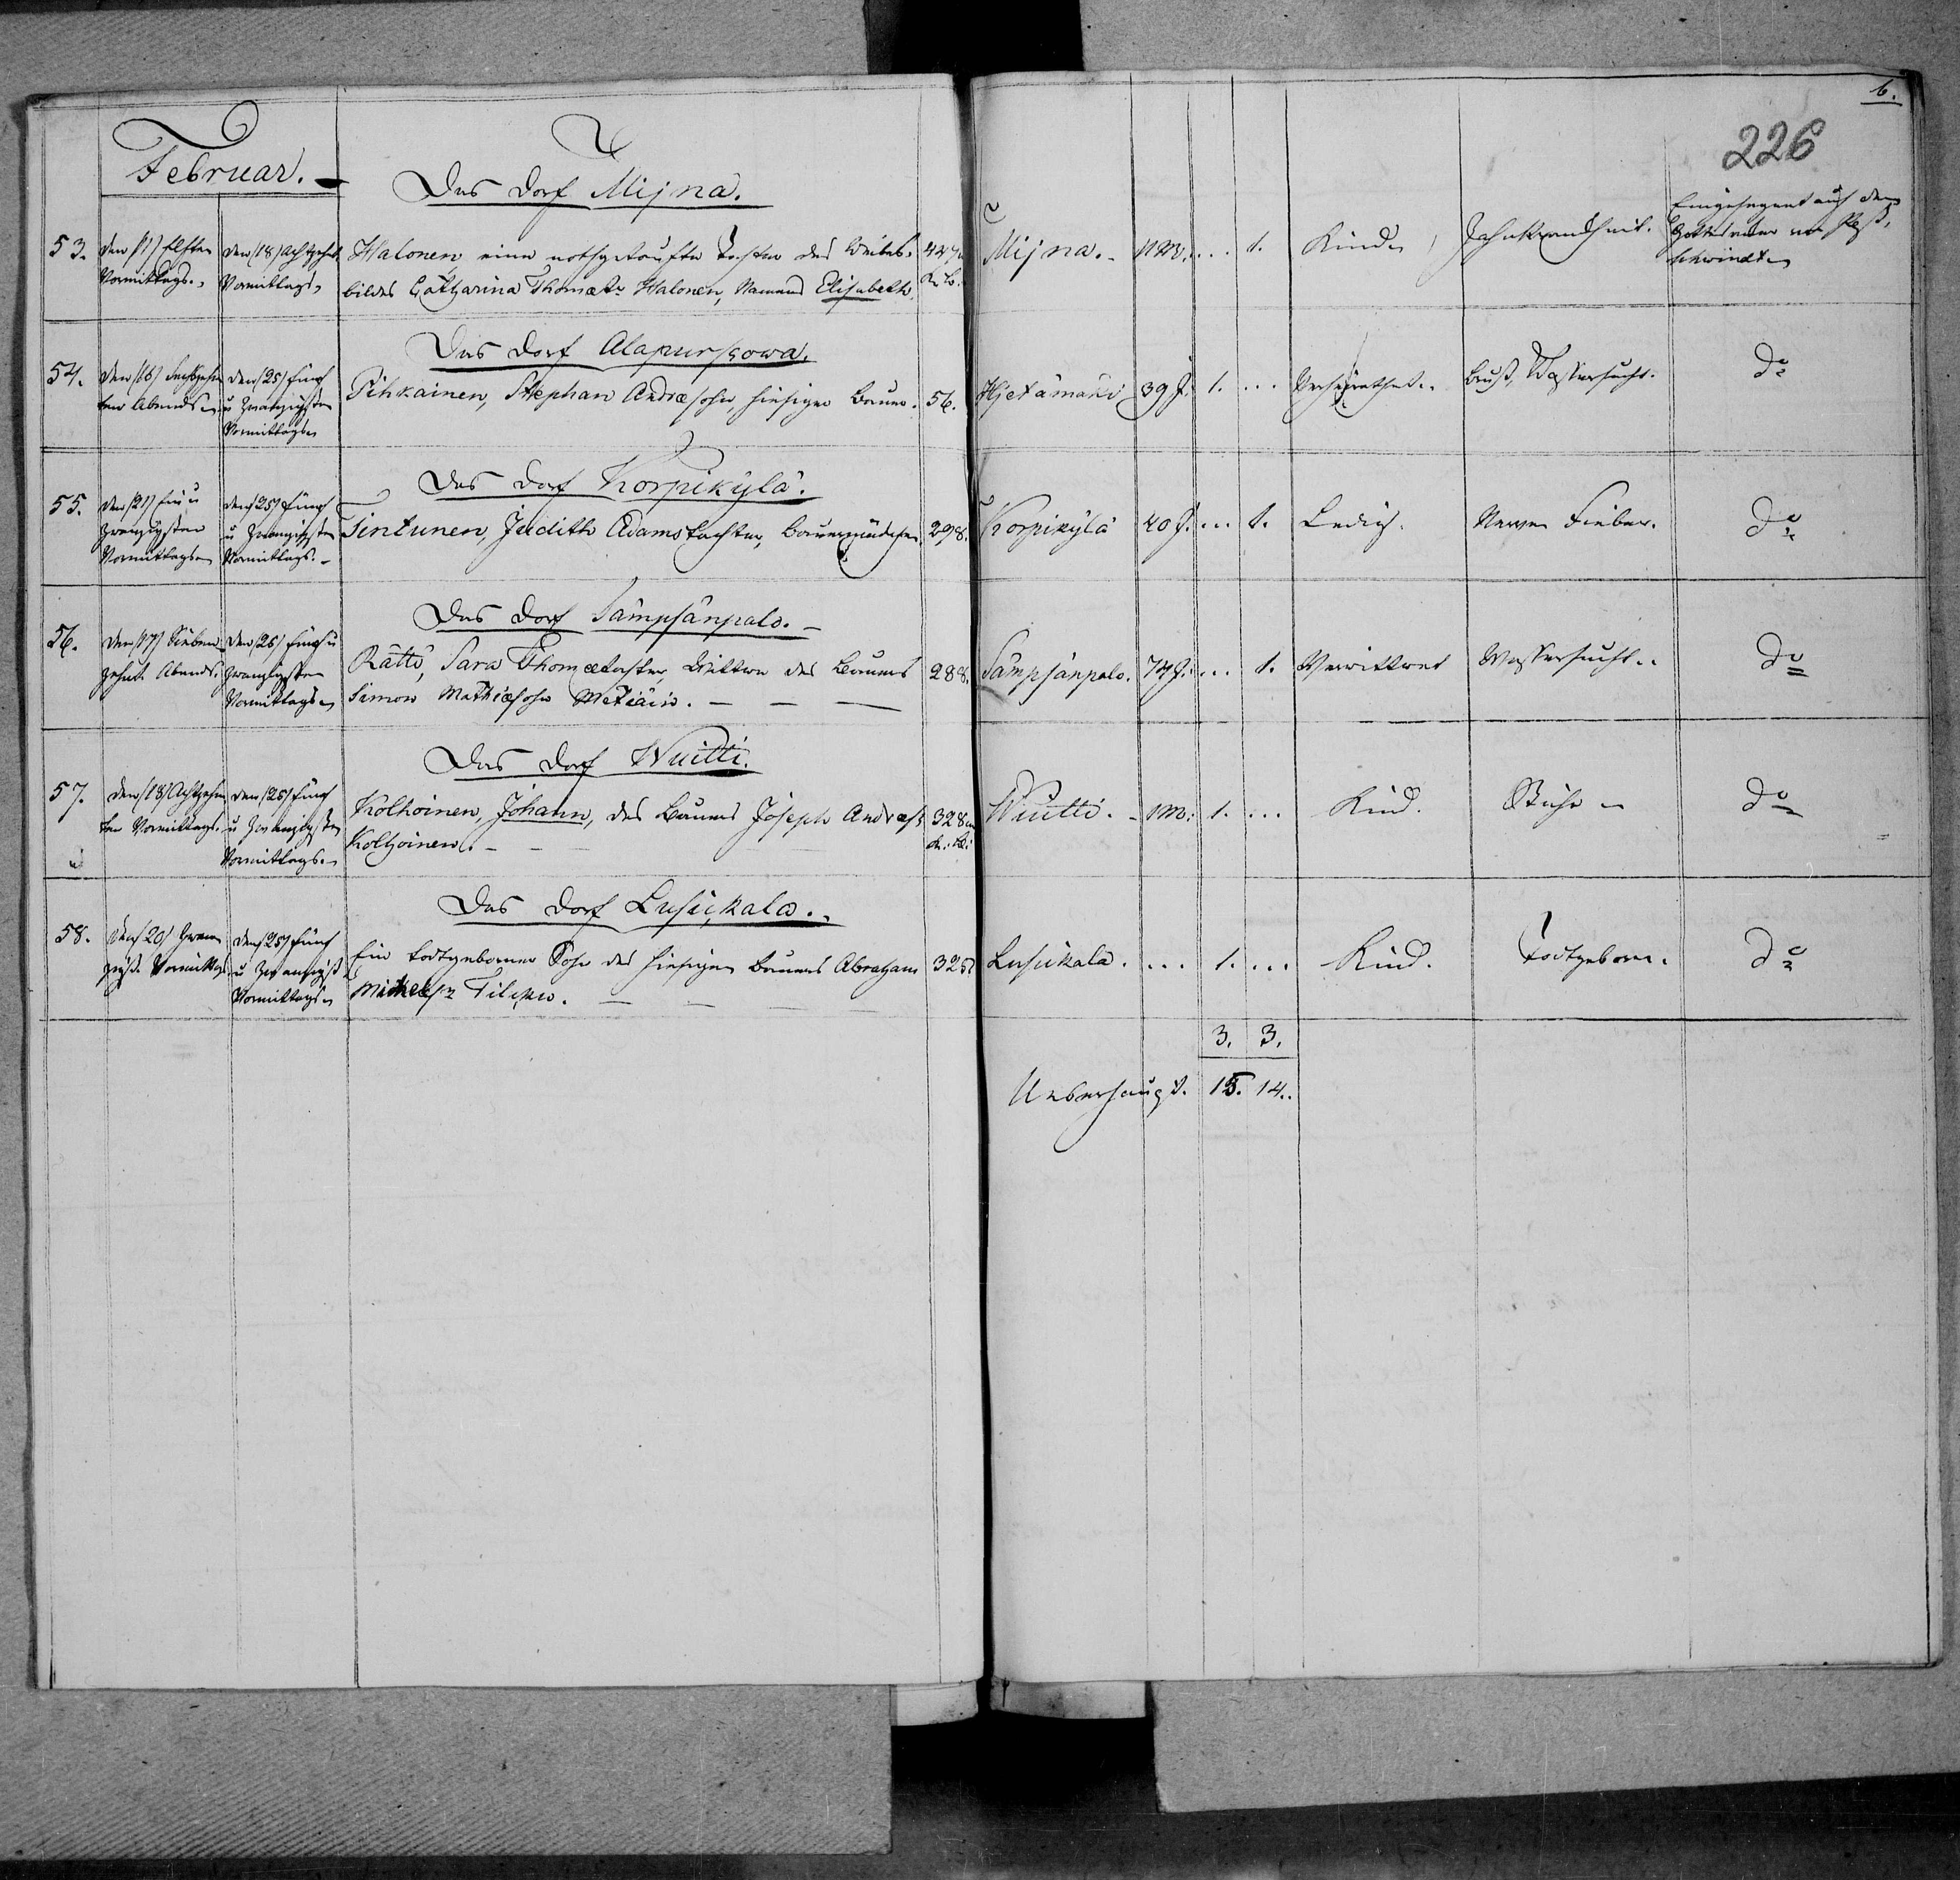 6.
226
Februar.
Das Dorf Mijna.
53. den (11) Elften Vormittags. den (18) Achtzehnt Vormittags Halonen eine nothgetaufte Tochter des Weibs- 427
bildes Catharina Thomæt. Halonen, Namens Elisabeth.
Mijna. 1. Kind. Zahnkrankheit. Eingesegnet auf dem
Gottesacker von Past.
Schwindt
Das Dorf Alapurskowa.
54. den (16) Sechszehn
ten Abends den (25) fünf
u Zwanzigsten
Vormittags
Pihkainen, Stephan Andræsohn hiesiger Bauer. 56.
Hietämäki 39 J. 1. ... Verheirathet. Brust Wassersucht. do
Das Dorf Korpikylä.
55. den (21) Ein u
Zwanzigsten
Vormittags den (25) fünf
u Zwanzigsten
Vormittags.
Tintunen, Judith Adamstochter, Bauermädchen. 298.
Korpikylä 40 J. ... 1. Ledig. Nerven Fieber. do
Das Dorf Sämpsänpalo.
56. den (17) Sieben
zehnt. Abends. den (25) fünf u
Zwanzigsten
Vormittags
Rättö, Sara Thomætochter, Wittwe des Bauers 288.
Simon Mathiæsohn Metiäin.
Sämpsänpalo. 74 J. ... 1. Verwittwet Wassersucht. do
Das Dorf Wuitti.
57. den (18) Achtzehn
ten Vormittags. den (25) fünf
u Zwanzigsten
Vormittags.
Kolhoinen, Johann, des Bauers Joseph Andræs 328
Kolhoinen.
Wuitti. 1 M. 1. ... Kind. do
Das Dorf Lusikkala.
58. den (20) Zwan
zigst. Vormittags den (25) fünf
u Zwanzigst
Vormittags
Ein todtgeborner Sohn des hiesigen Bauers Abraham 325
Lusikkala. ... 1. ... Kind. Todtgeborn. do
3. 3.
Ueberhaupt. 15. 14.